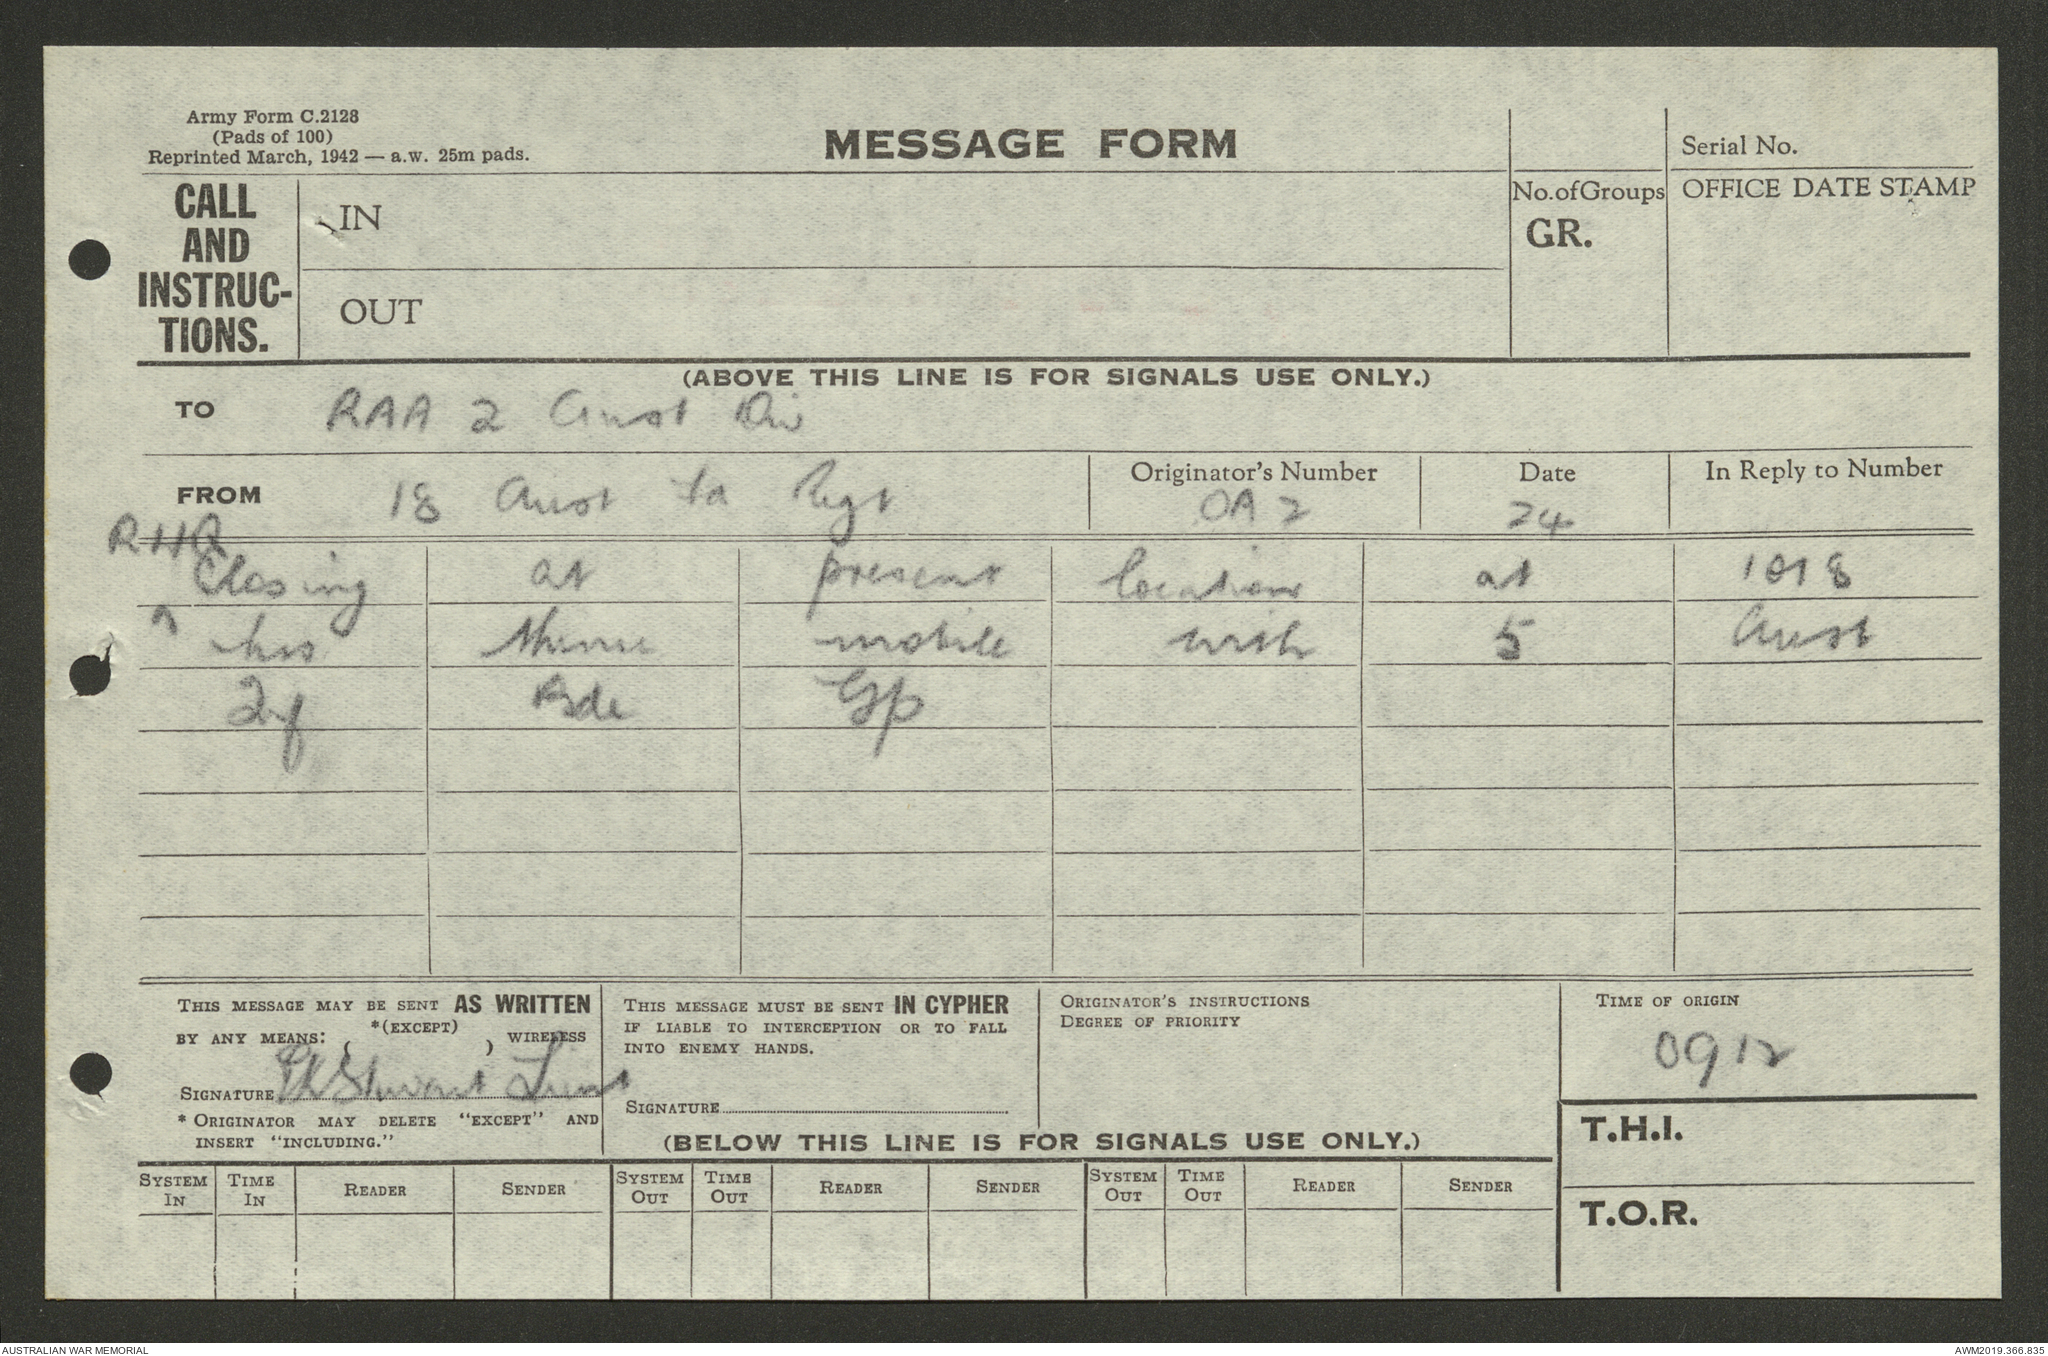 Army Form C.2128
(Pads of 100)
Reprinted March, 1942 — a.w. 25m pads.
MESSAGE FORM
Serial No.
CALL AND INSTRUC-TIONS.
IN
OUT
No. of Groups
GR.
OFFICE DATE STAMP
(ABOVE THIS LINE IS FOR SIGNALS USE ONLY.)
TO RAA 2 Aust Div
FROM 18 Aust Fd Regt
Originator's Number
OA 2
Date
24
In Reply to Number
RHQ
Closing at present location at 1018
hrs thence mobile with 5 Aust
Inf Bde Gp
THIS MESSAGE MAY BE SENT AS WRITTEN
BY ANY MEANS: *(EXCEPT) WIRELESS
SIGNATURE Stewart Lieut
* ORIGINATOR MAY DELETE "EXCEPT" AND
INSERT "INCLUDING."
THIS MESSAGE MUST BE SENT IN CYPHER
IF LIABLE TO INTERCEPTION OR TO FALL
INTO ENEMY HANDS.
SIGNATURE
ORIGINATOR'S INSTRUCTIONS
DEGREE OF PRIORITY
TIME OF ORIGIN
0912
(BELOW THIS LINE IS FOR SIGNALS USE ONLY.)
T.H.I.
T.O.R.
SYSTEM IN TIME IN READER SENDER SYSTEM OUT TIME OUT READER SENDER SYSTEM OUT TIME OUT READER SENDER
AUSTRALIAN WAR MEMORIAL
AWM2019.366.835